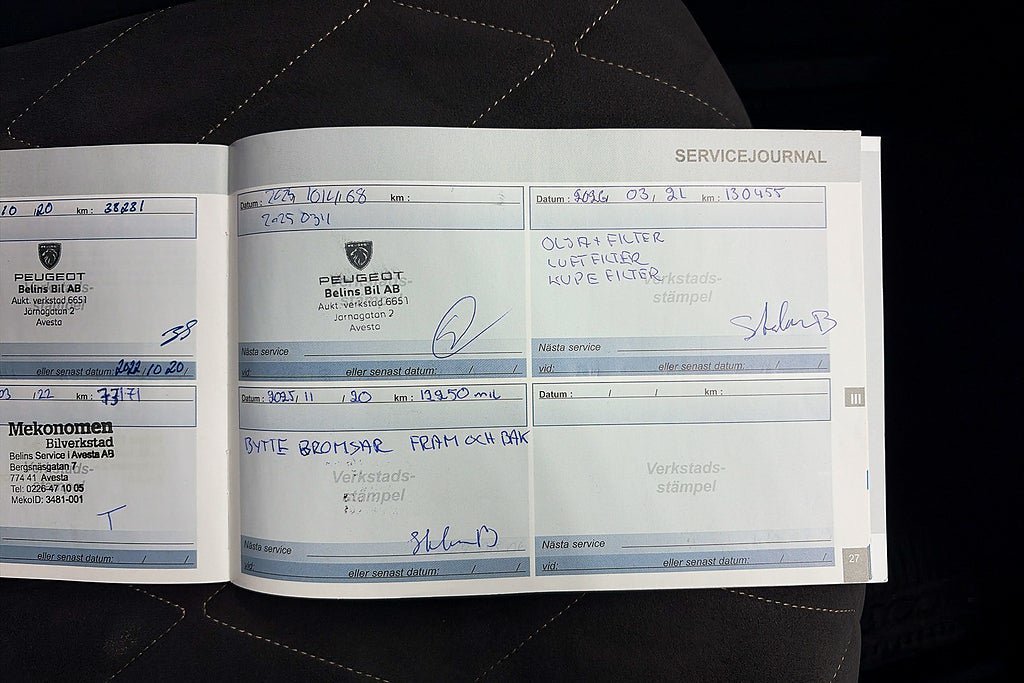 SERVICEJOURNAL
10 20 km : 38281
PEUGEOT
Belins Bil AB
Aukt. verkstad 6651
Järnagatan 2
Avesta
38
eller senast datum: 2022/10 20/
03 /22 km : 77171
Mekonomen
Bilverkstad
Belins Service i Avesta AB
Bergsnäsgatan 7
774 41 Avesta
Tel: 0226-47 10 05
MekoID: 3481-001
eller senast datum: / /
Datum : km :
PEUGEOT
Belins Bil AB
Aukt. verkstad 6651
Järnagatan 2
Avesta
Verkstads-
stämpel
Nästa service
vid: eller senast datum: / /
Datum : 2026 03, 21 km : 130455
OLJA + FILTER
LUFTFILTER
KUPE FILTER
Verkstads-
stämpel
Nästa service
vid: eller senast datum: / /
Datum : 2025, 11 / 20 km : 12250 mil
BYTTE BROMSAR FRAM OCH BAK
Verkstads-
stämpel
Nästa service
vid: eller senast datum: / /
Datum : / / km :
Verkstads-
stämpel
Nästa service
vid: eller senast datum: / /
III
27